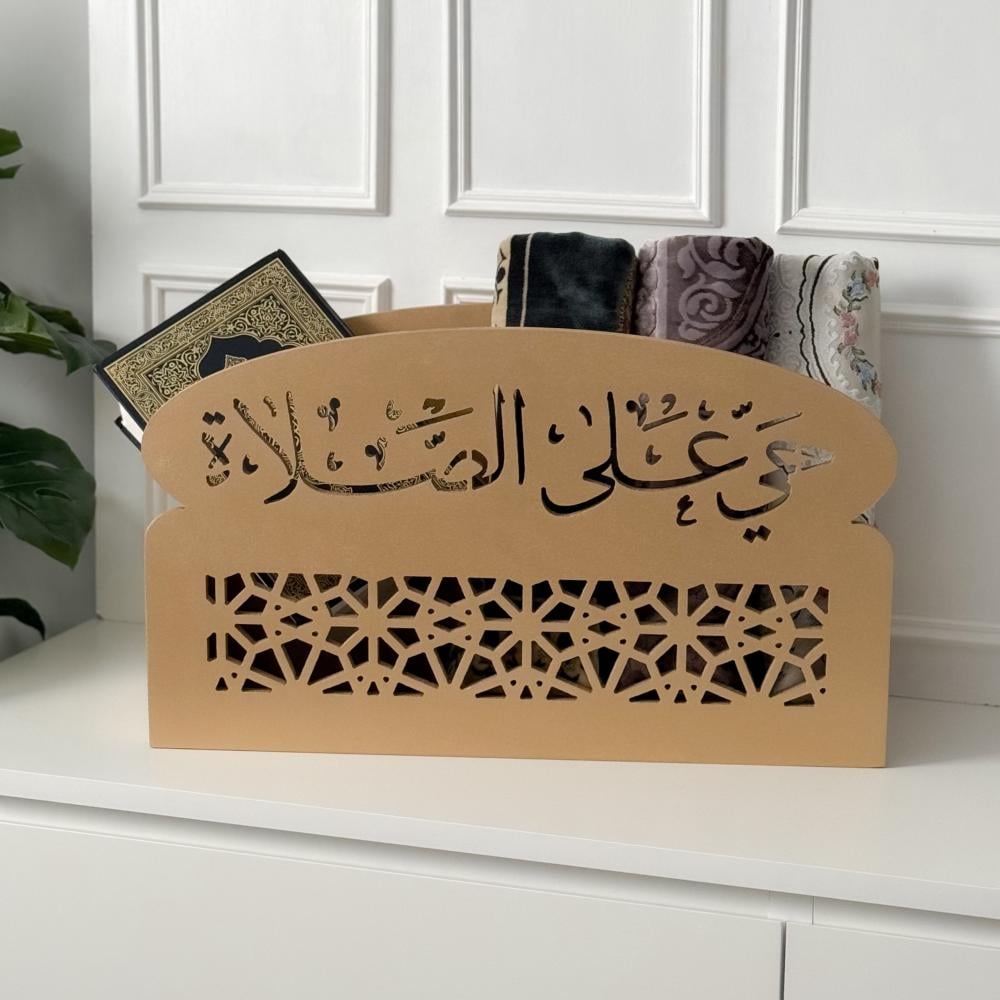 حَيَّ عَلَى الصَّلَاةِ